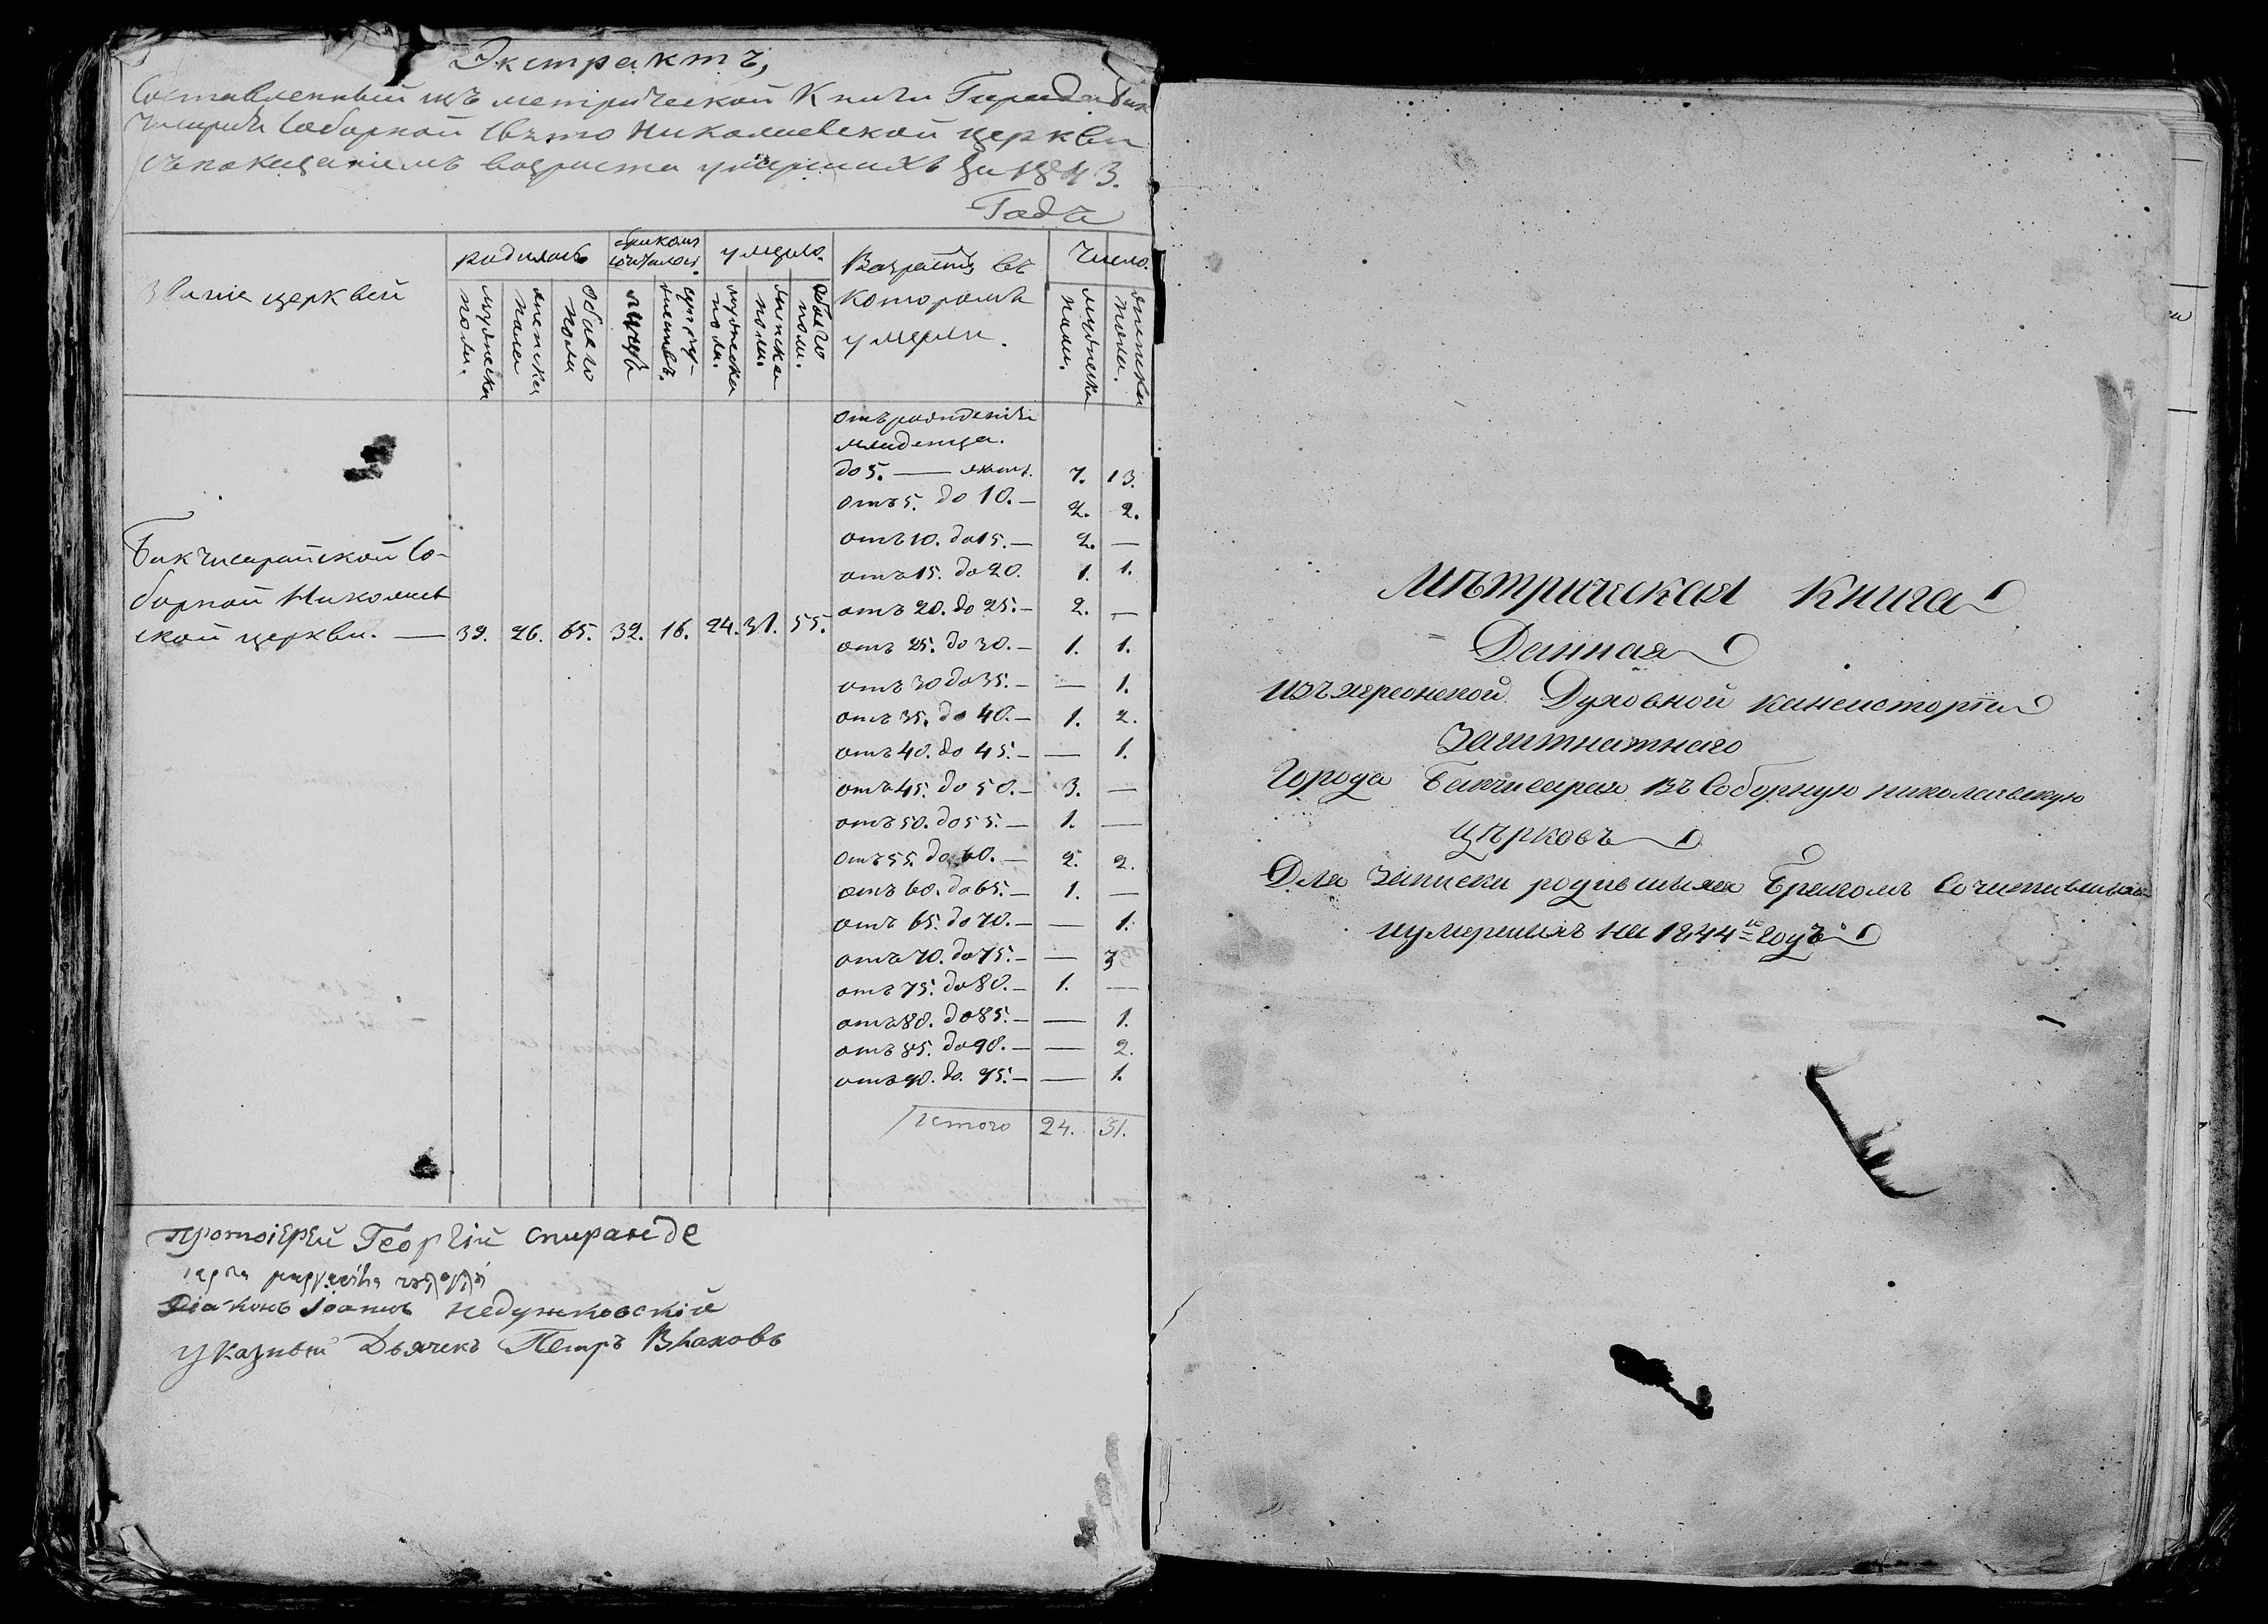 Экстрактъ,
Составленный изъ метрической Книги Города Бах
чисарая Соборной Свято Николаевской церкви
съ показаніемъ возраста умершихъ за 1843.
Годъ
Званіе церквей
родилось
бракомъ сочеталось
умерло.
Возрастъ въ которомъ умерли.
Число.
мужеска пола.
женска пола
Обоего пола
супружествъ.
мужеска пола.
женска пола.
Обоего пола.
мужеска пола.
женска пола.
отъ рожденія
младенца.
до 5. — лѣтъ. 7. 13.
отъ 5. до 10. — 2. 2.
отъ 10. до 15. — 2. —
отъ 15. до 20. 1. 1.
отъ 20. до 25. — 2. —
отъ 25. до 30. — 1. 1.
отъ 30 до 35. — — 1.
отъ 35. до 40. — 1. 2.
отъ 40. до 45. — — 1.
отъ 45. до 50. — 3. —
отъ 50. до 55. — 1. —
отъ 55. до 60. — 2. 2.
отъ 60. до 65. — 1. —
отъ 65. до 70. — — 1.
отъ 70. до 75. — — 3
отъ 75. до 80. — 1. —
отъ 80. до 85. — — 1.
отъ 85. до 90. — — 2.
отъ 90. до. 95. — — 1.
Итого 24. 31.
Бакчисарайской Со-
борной Николаев
ской церкви. — 39. 26. 65. 32. 16. 24. 31. 55.
Протоіерей Георгій Спиранде
Діаконъ Іоаннъ Недужковскій
Указный Дьячекъ Петръ Влаховъ
Мѣтрическая Книга
Данная
изъ херсонской Духовной кансисторіи
Заштнатнаго
Города Бакчисарая въ Соборную николаевскую
Цѣрковъ
Для Записки родившихся Бракомъ Сочетавшихся
иумершихъ на 1844й годъ